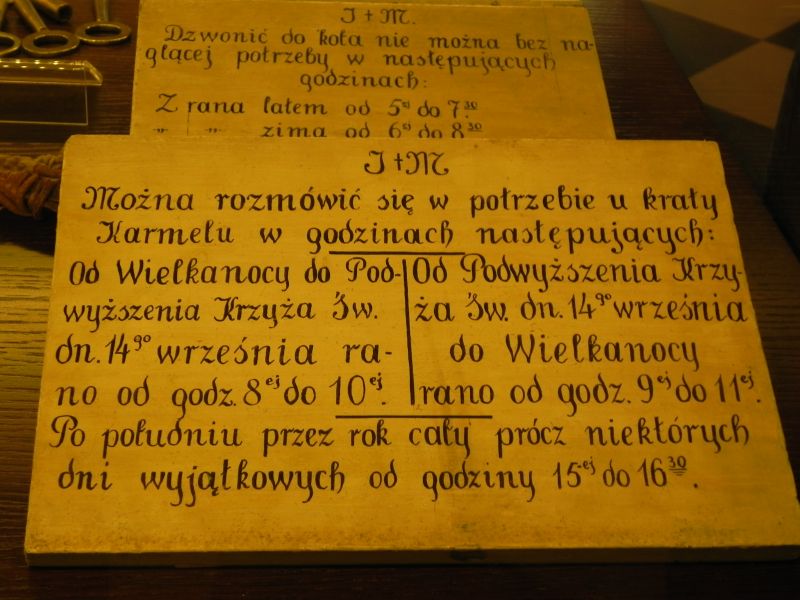 J + M.
Dzwonić do koła nie można bez na-
glącej potrzeby w następujących
godzinach:
Z rana latem od 5ej do 7.30
" " zimą od 6ej do 8.30
J + M
Można rozmówić się w potrzebie u kraty
Karmelu w godzinach następujących:
Od Wielkanocy do Pod-
wyższenia Krzyża Św.
dn. 14go września ra-
no od godz. 8ej do 10ej.
Od Podwyższenia Krzy-
ża Św. dn. 14go września
do Wielkanocy
rano od godz. 9ej do 11ej.
Po południu przez rok cały prócz niektórych
dni wyjątkowych od godziny 15ej do 1630.